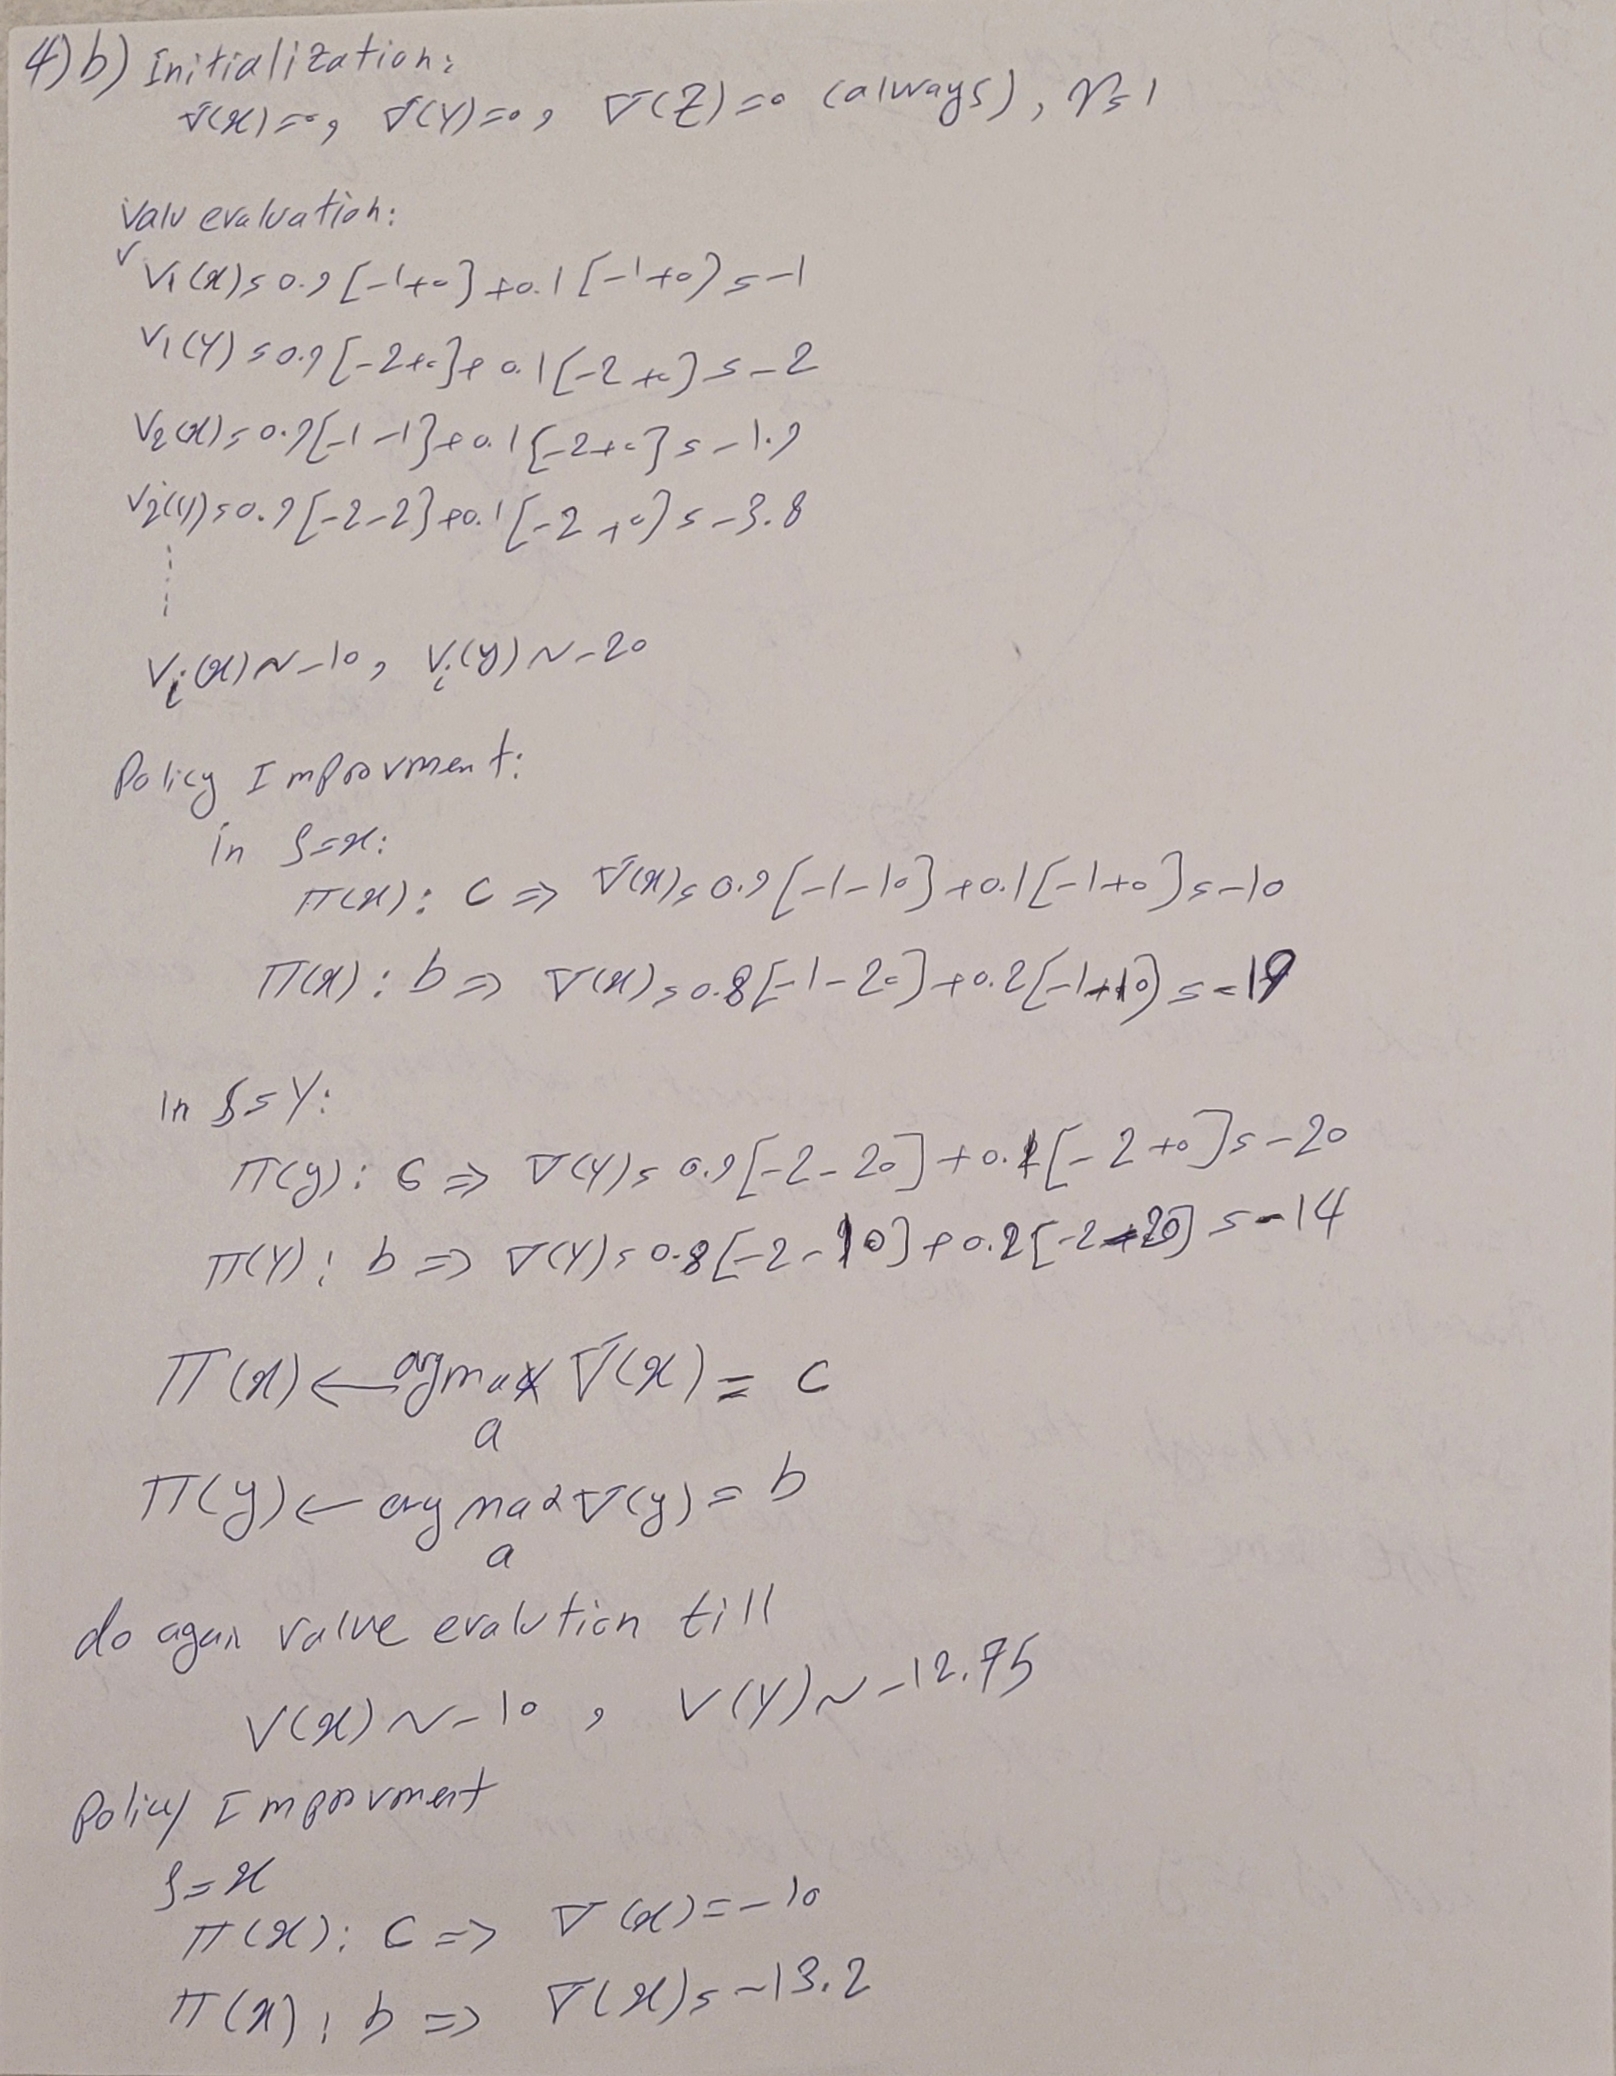 4) b) Initialization:
V(x)=0, V(Y)=0, V(Z)=0 (always), γ=1
Valu evaluation:
V1(x)=0.9[-1+0]+0.1[-1+0]=-1
V1(Y)=0.9[-2+0]+0.1[-2+0]=-2
V2(x)=0.9[-1-1]+0.1[-2+0]=-1.9
V2(Y)=0.9[-2-2]+0.1[-2+0]=-3.8
Vi(x)~-10, Vi(y)~-20
Policy Improvment:
in S=x:
π(x): C => V(x)=0.9[-1-10]+0.1[-1+0]=-10
π(x): b => V(x)=0.8[-1-20]+0.2[-1+10]=-19
In S=Y:
π(y): C => V(Y)=0.9[-2-20]+0.1[-2+0]=-20
π(Y): b => V(Y)=0.8[-2-10]+0.2[-2-20]=-14
π(x) ← argmax V(x) = C
a
π(y) ← argmax V(y) = b
a
do again value evalution till
V(x)~-10, V(Y)~-12.75
Policy Improvment
S=x
π(x): C => V(x)=-10
π(x): b => V(x)=-13.2